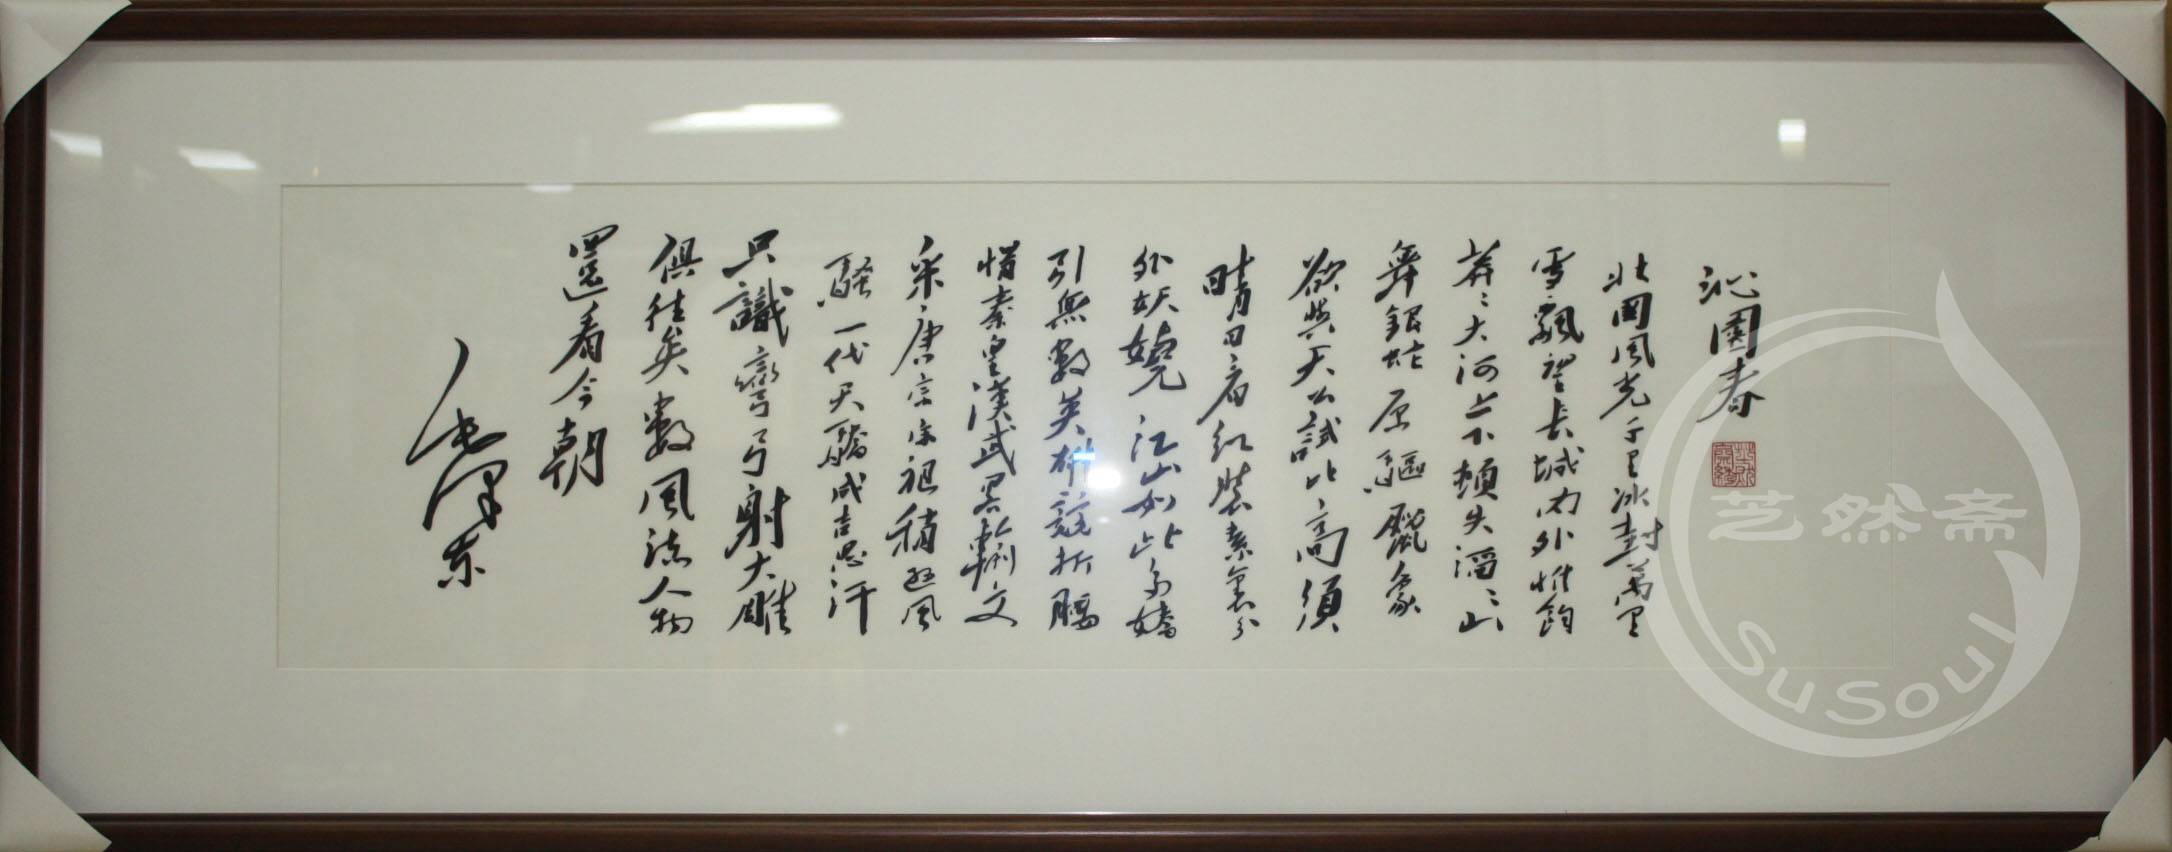 沁園春
北國風光千里冰封萬里
雪飄望長城內外惟餘
莽〻大河上下頓失滔〻山
舞銀蛇原驅臘象
欲與天公試比高須
晴日看紅裝素裹分
外妖嬈江山如此多嬌
引無數英雄競折腰
惜秦皇漢武略輸文
采唐宗宋祖稍遜風
騷一代天驕成吉思汗
只識彎弓射大雕
俱往矣數風流人物
還看今朝
毛澤東
芝然斋
SuSoul